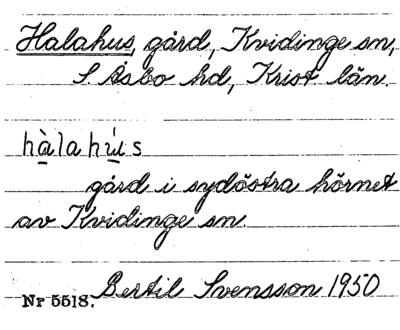 Halahus, gård, Kvidinge sn,
S. Åsbo hd, Krist. län.
hàlahú̱s
gård i sydöstra hörnet
av Kvidinge sn.
Bertil Svensson 1950
Nr 5518.